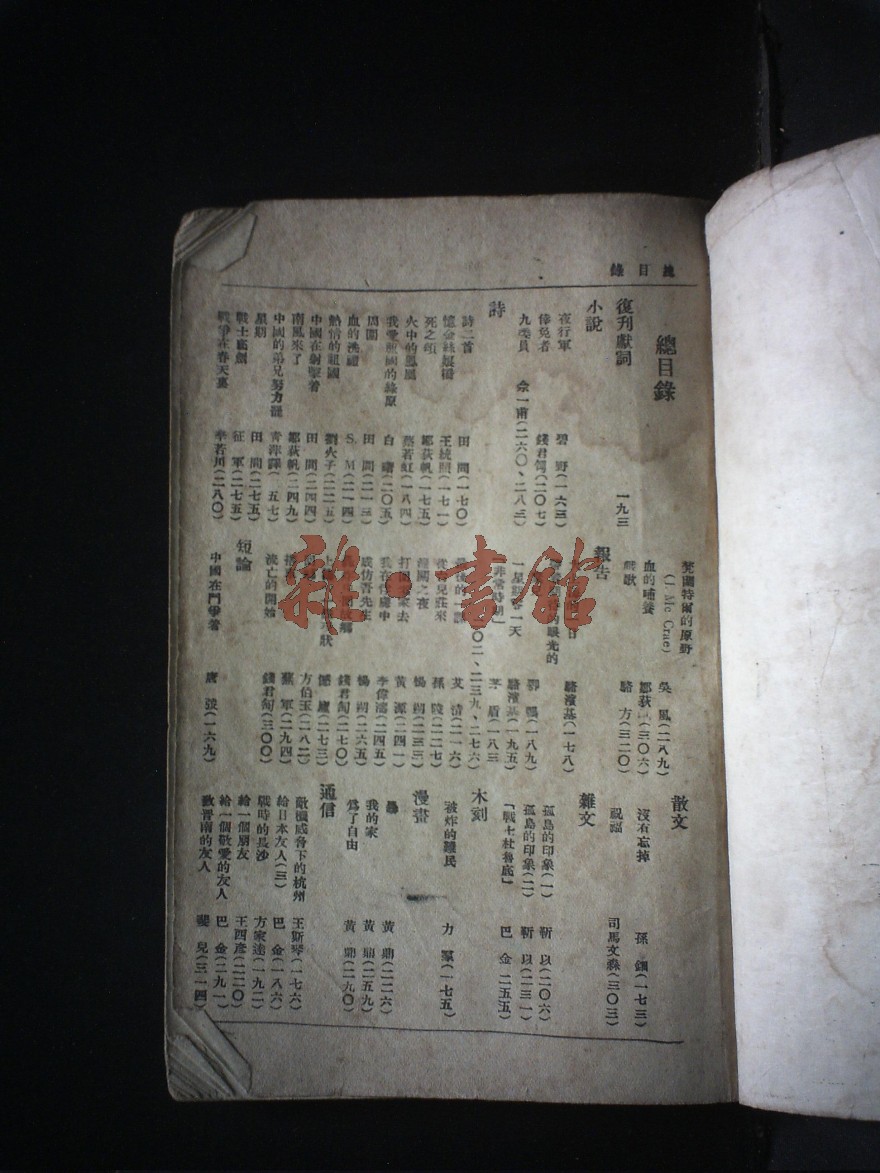 總目錄
總目錄
復刊獻詞 一九三
小說
夜行軍 碧野(一六三)
倖免者 錢君匋(二〇七)
九委員 佘一甫(二六〇、二八三)
詩
詩二首 田間(一七〇)
王統照(一七一)
死之頌 鄒荻帆(一七五)
火中的鳳凰 蔡若虹(一八四)
我愛祖國的綠原 白曙(二〇五)
田間(二一三)
血的洗禮 S.M(二一四)
熱情的祖國 劉火子(二二五)
中國在射擊着 田間(二四四)
南風來了 鄒荻帆(二四九)
中國的弟兄努力罷 青萍譯(五七)
星期 田間(二七五)
戰士底劍 征軍(二七五)
戰爭在春天裏 李若川(二八〇)
芠蘭特爾的原野
(J. Mc Crae) 吳風(二八九)
血的哺養 鄒荻(三〇六)
戰歌 駱方(三二〇)
報告
眼光的 駱濱基(一七八)
郭(一八九)
一星期零一天 駱濱基(一九五)
「非常時期」 茅盾(一八三
二〇二、二三九、二七六)
最後的一課 艾(二一六)
莊來 孫陵(二二七)
潼關之夜 楊朔(二三三)
打回老家去 黃源(二四一)
我在行處中 李偉濤(二四五)
成仿吾先生 楊朔(二六五)
錢君匋(二七〇)
狀 慰廬(二七三)
方伯玉(一八二)
蕪軍(二九四)
流亡的開始 錢君匋(三〇〇)
短論
中國在鬥爭着 唐弢(一六九)
散文
沒有忘掉 孫鈿(一七三)
祝福 司馬文森(三〇三)
雜文
孤島的印象(一) 靳以(二〇六)
孤島的印象(二) 靳以(二三一)
「戰士杜魯底」 巴金(二五五)
木刻
被炸的難民 力羣(一七五)
漫畫
黃鼎(二二六)
我的家 黃鼎(二五九)
爲了自由 黃鼎(二九〇)
通信
敵機威脅下的杭州 王斯琴(一七六)
給日本友人(三) 巴金(一八六)
戰時的長沙 方家達(一九二)
給一個朋友 王西彥(二二〇)
給一個敬愛的友人 巴金(二九一)
致晉南的友人 斐兒(三一四)
雜·書館